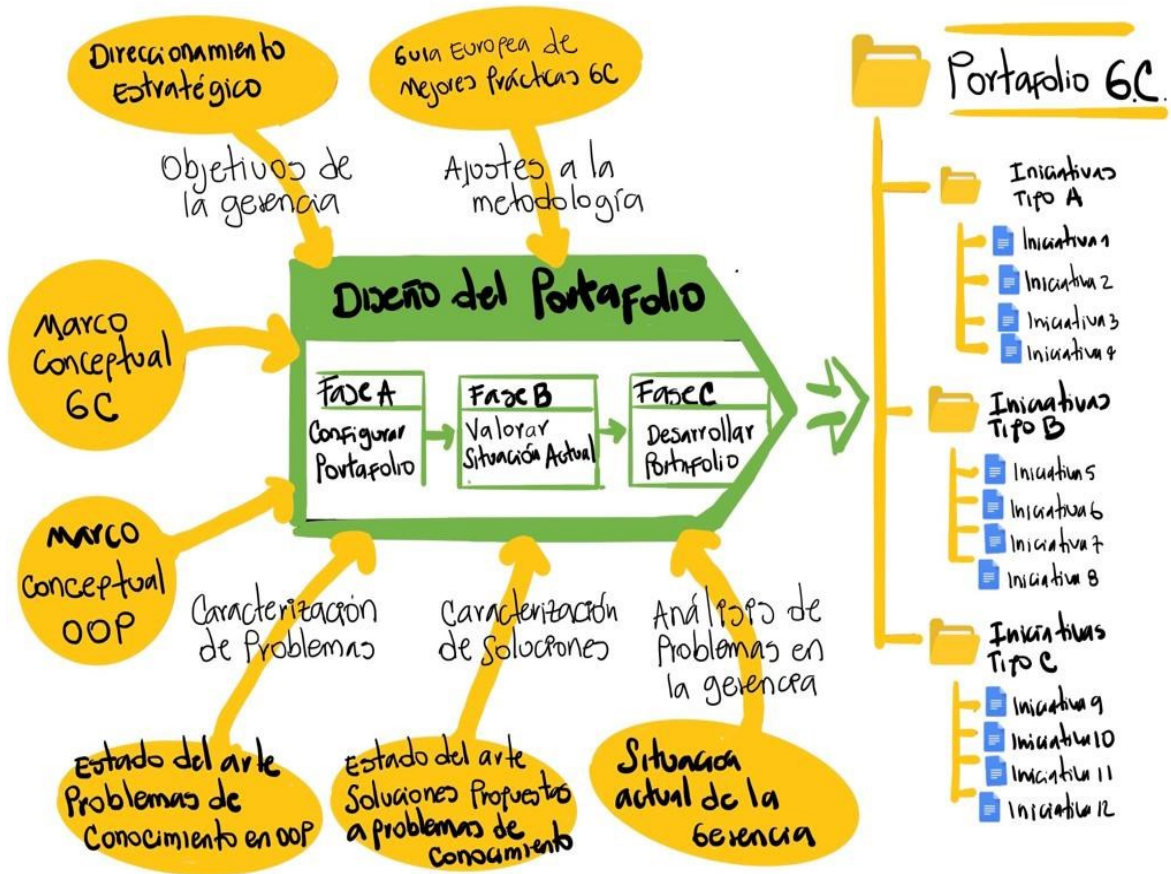 Direccionamiento
Estratégico
Guia Europea de
Mejores Prácticas GC
Objetivos de
la gerencia
Ajustes a la
metodología
Marco
Conceptual
GC
Marco
Conceptual
OOP
Diseño del Portafolio
Fase A
Configurar
Portafolio
Fase B
Valorar
Situación Actual
Fase C
Desarrollar
Portafolio
Caracterización
de Problemas
Caracterización
de Soluciones
Análisis de
Problemas en
la gerencia
Estado del arte
Problemas de
Conocimiento en OOP
Estado del arte
Soluciones Propuestas
a problemas de
Conocimiento
Situación
actual de la
Gerencia
Portafolio G.C.
Iniciativas
Tipo A
Iniciativa 1
Iniciativa 2
Iniciativa 3
Iniciativa 4
Iniciativas
Tipo B
Iniciativa 5
Iniciativa 6
Iniciativa 7
Iniciativa 8
Iniciativas
Tipo C
Iniciativa 9
Iniciativa 10
Iniciativa 11
Iniciativa 12